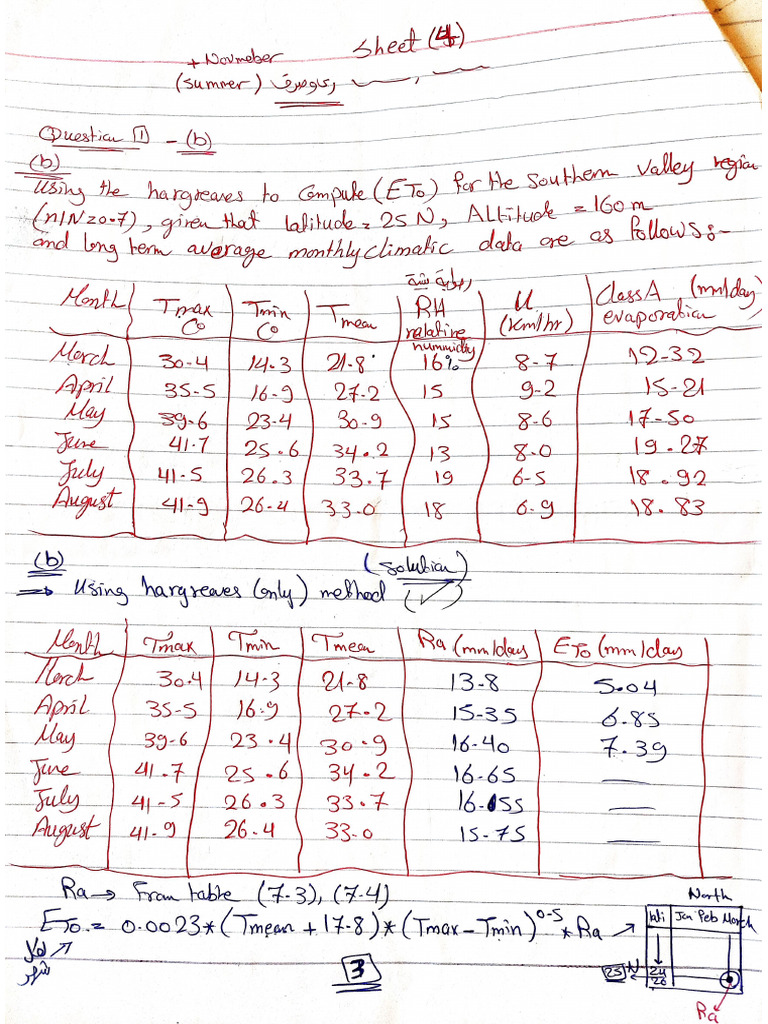 Sheet (4)
+ Novmeber
(summer)
Question 1 - (b)
(b)
Using the hargreaves to Compute (ETo) for the Southern Valley region
(n/N=0.7), given that latitude = 25 N, Altitude = 160 m
and long term average monthly climatic data are as follows:-
Month Tmax Co Tmin Co Tmean RH relative hummidity U (Km/hr) Class A (mm/day) evaporation
March 30.4 14.3 21.8 16% 8.7 12.32
April 35.5 16.9 27.2 15 9.2 15.21
May 39.6 23.4 30.9 15 8.6 17.50
June 41.7 25.6 34.2 13 8.0 19.27
July 41.5 26.3 33.7 19 6.5 18.92
August 41.9 26.4 33.0 18 6.9 18.83
(b) (Solution)
⇒ Using hargreaves (only) method (✓)
Month Tmax Tmin Tmean Ra (mm/day) ETo (mm/day)
March 30.4 14.3 21.8 13.8 5.04
April 35.5 16.9 27.2 15.35 6.85
May 39.6 23.4 30.9 16.40 7.39
June 41.7 25.6 34.2 16.65 —
July 41.5 26.3 33.7 16.55 —
August 41.9 26.4 33.0 15.75 —
Ra → From table (7.3), (7.4)
ETo = 0.0023*(Tmean + 17.8)*(Tmax-Tmin)^0.5 * Ra →
لكل
شهر
3
North
Jan Feb March
25 N
24
26
Ra